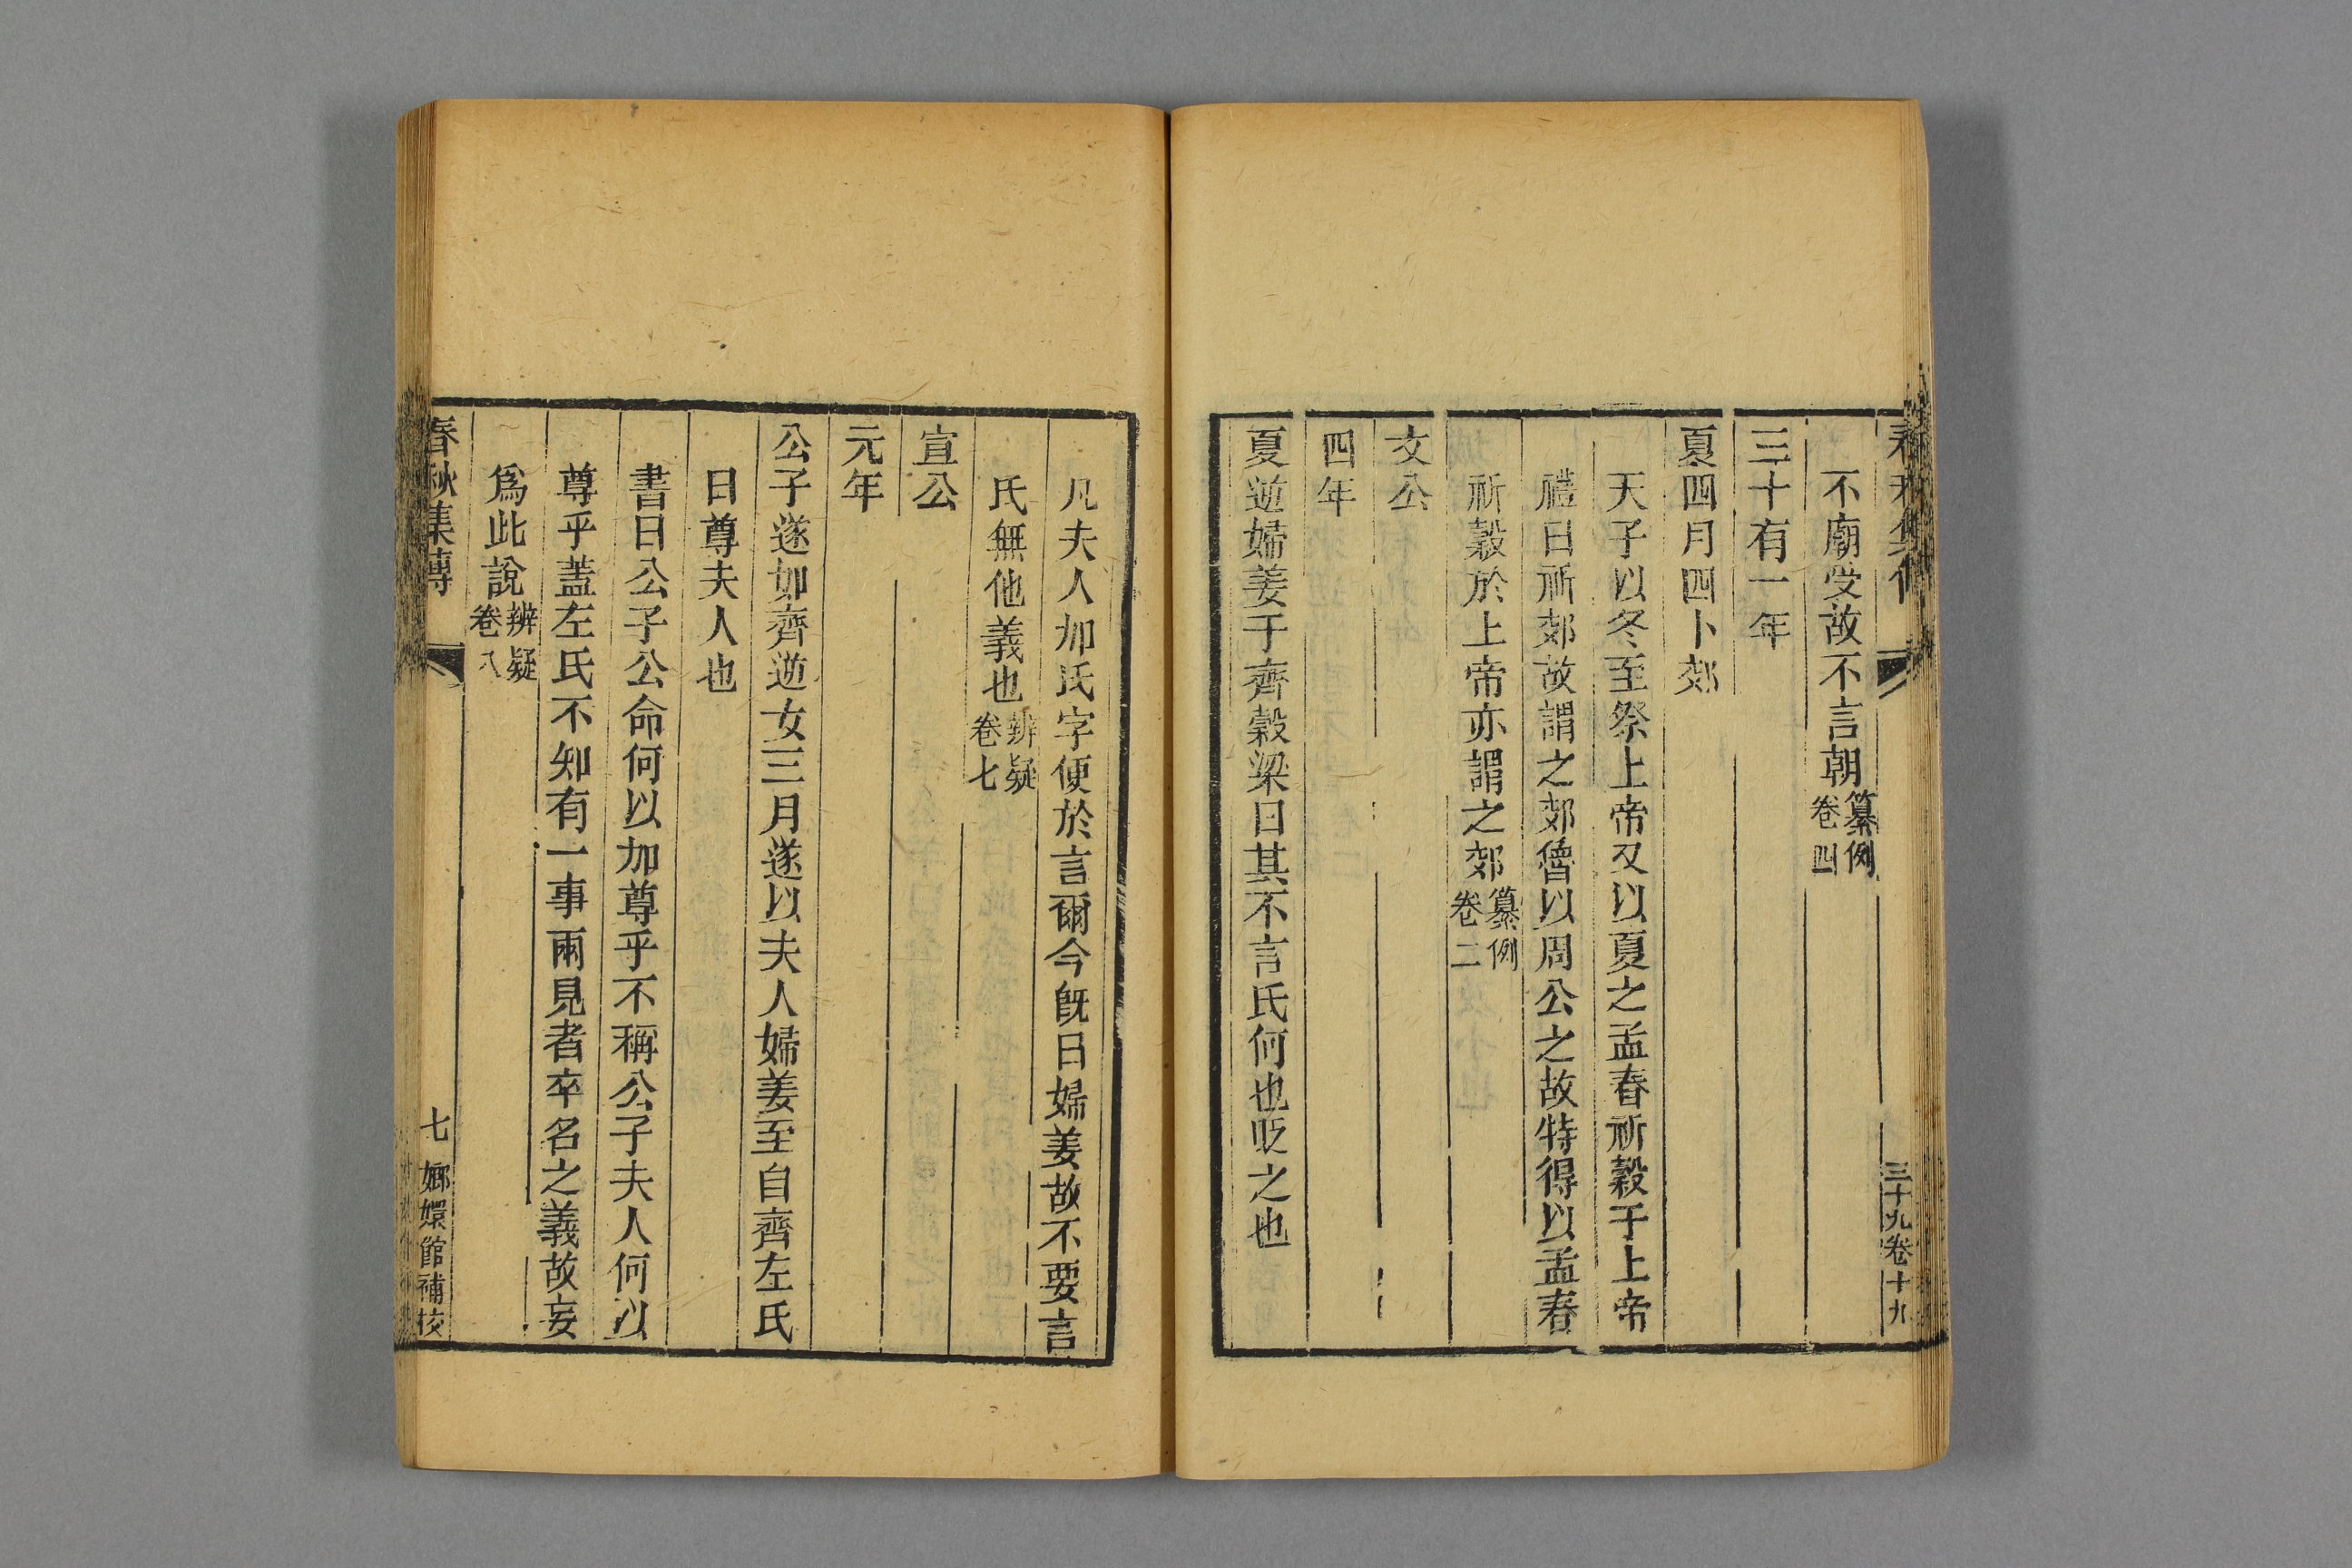 春秋集傳
三十九卷十九
不廟受故不言朝纂例卷四
三十有一年
夏四月四卜郊
天子以冬至祭上帝又以夏之孟春祈穀于上帝
禮曰祈郊故謂之郊魯以周公之故特得以孟春
祈穀於上帝亦謂之郊纂例卷二
文公
四年
夏逆婦姜于齊穀梁曰其不言氏何也貶之也
凡夫人加氏字便於言爾今旣曰婦姜故不要言
氏無他義也辨疑卷七
宣公
元年
公子遂如齊逆女三月遂以夫人婦姜至自齊左氏
曰尊夫人也
書曰公子公命何以加尊乎不稱公子夫人何以
尊乎蓋左氏不知有一事兩見者卒名之義故妄
爲此說辨疑卷八
春秋集傳
七
嫏嬛館補校